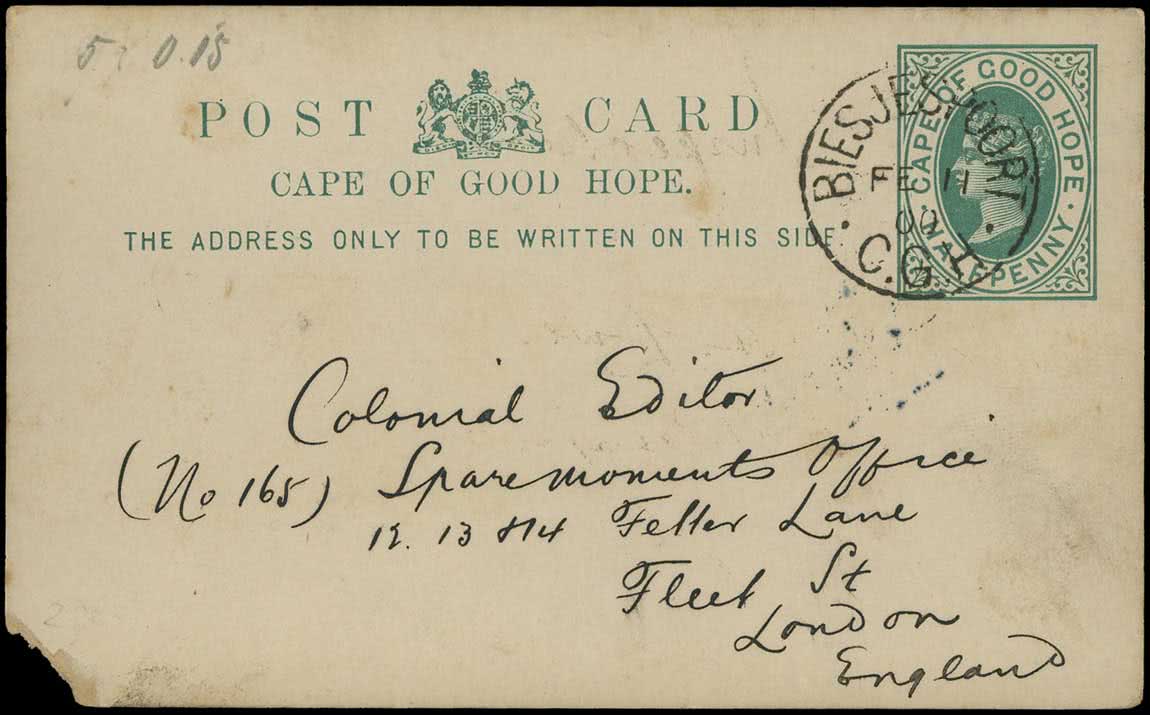 5 0.15
POST CARD
CAPE OF GOOD HOPE.
THE ADDRESS ONLY TO BE WRITTEN ON THIS SIDE.
CAPE OF GOOD HOPE
HALFPENNY
BIESJESPOORT
FE 11
00
C.G.H
Colonial Editor
(No 165) Sparemoments Office
12. 13 &14 Fetter Lane
Fleet St
London
England